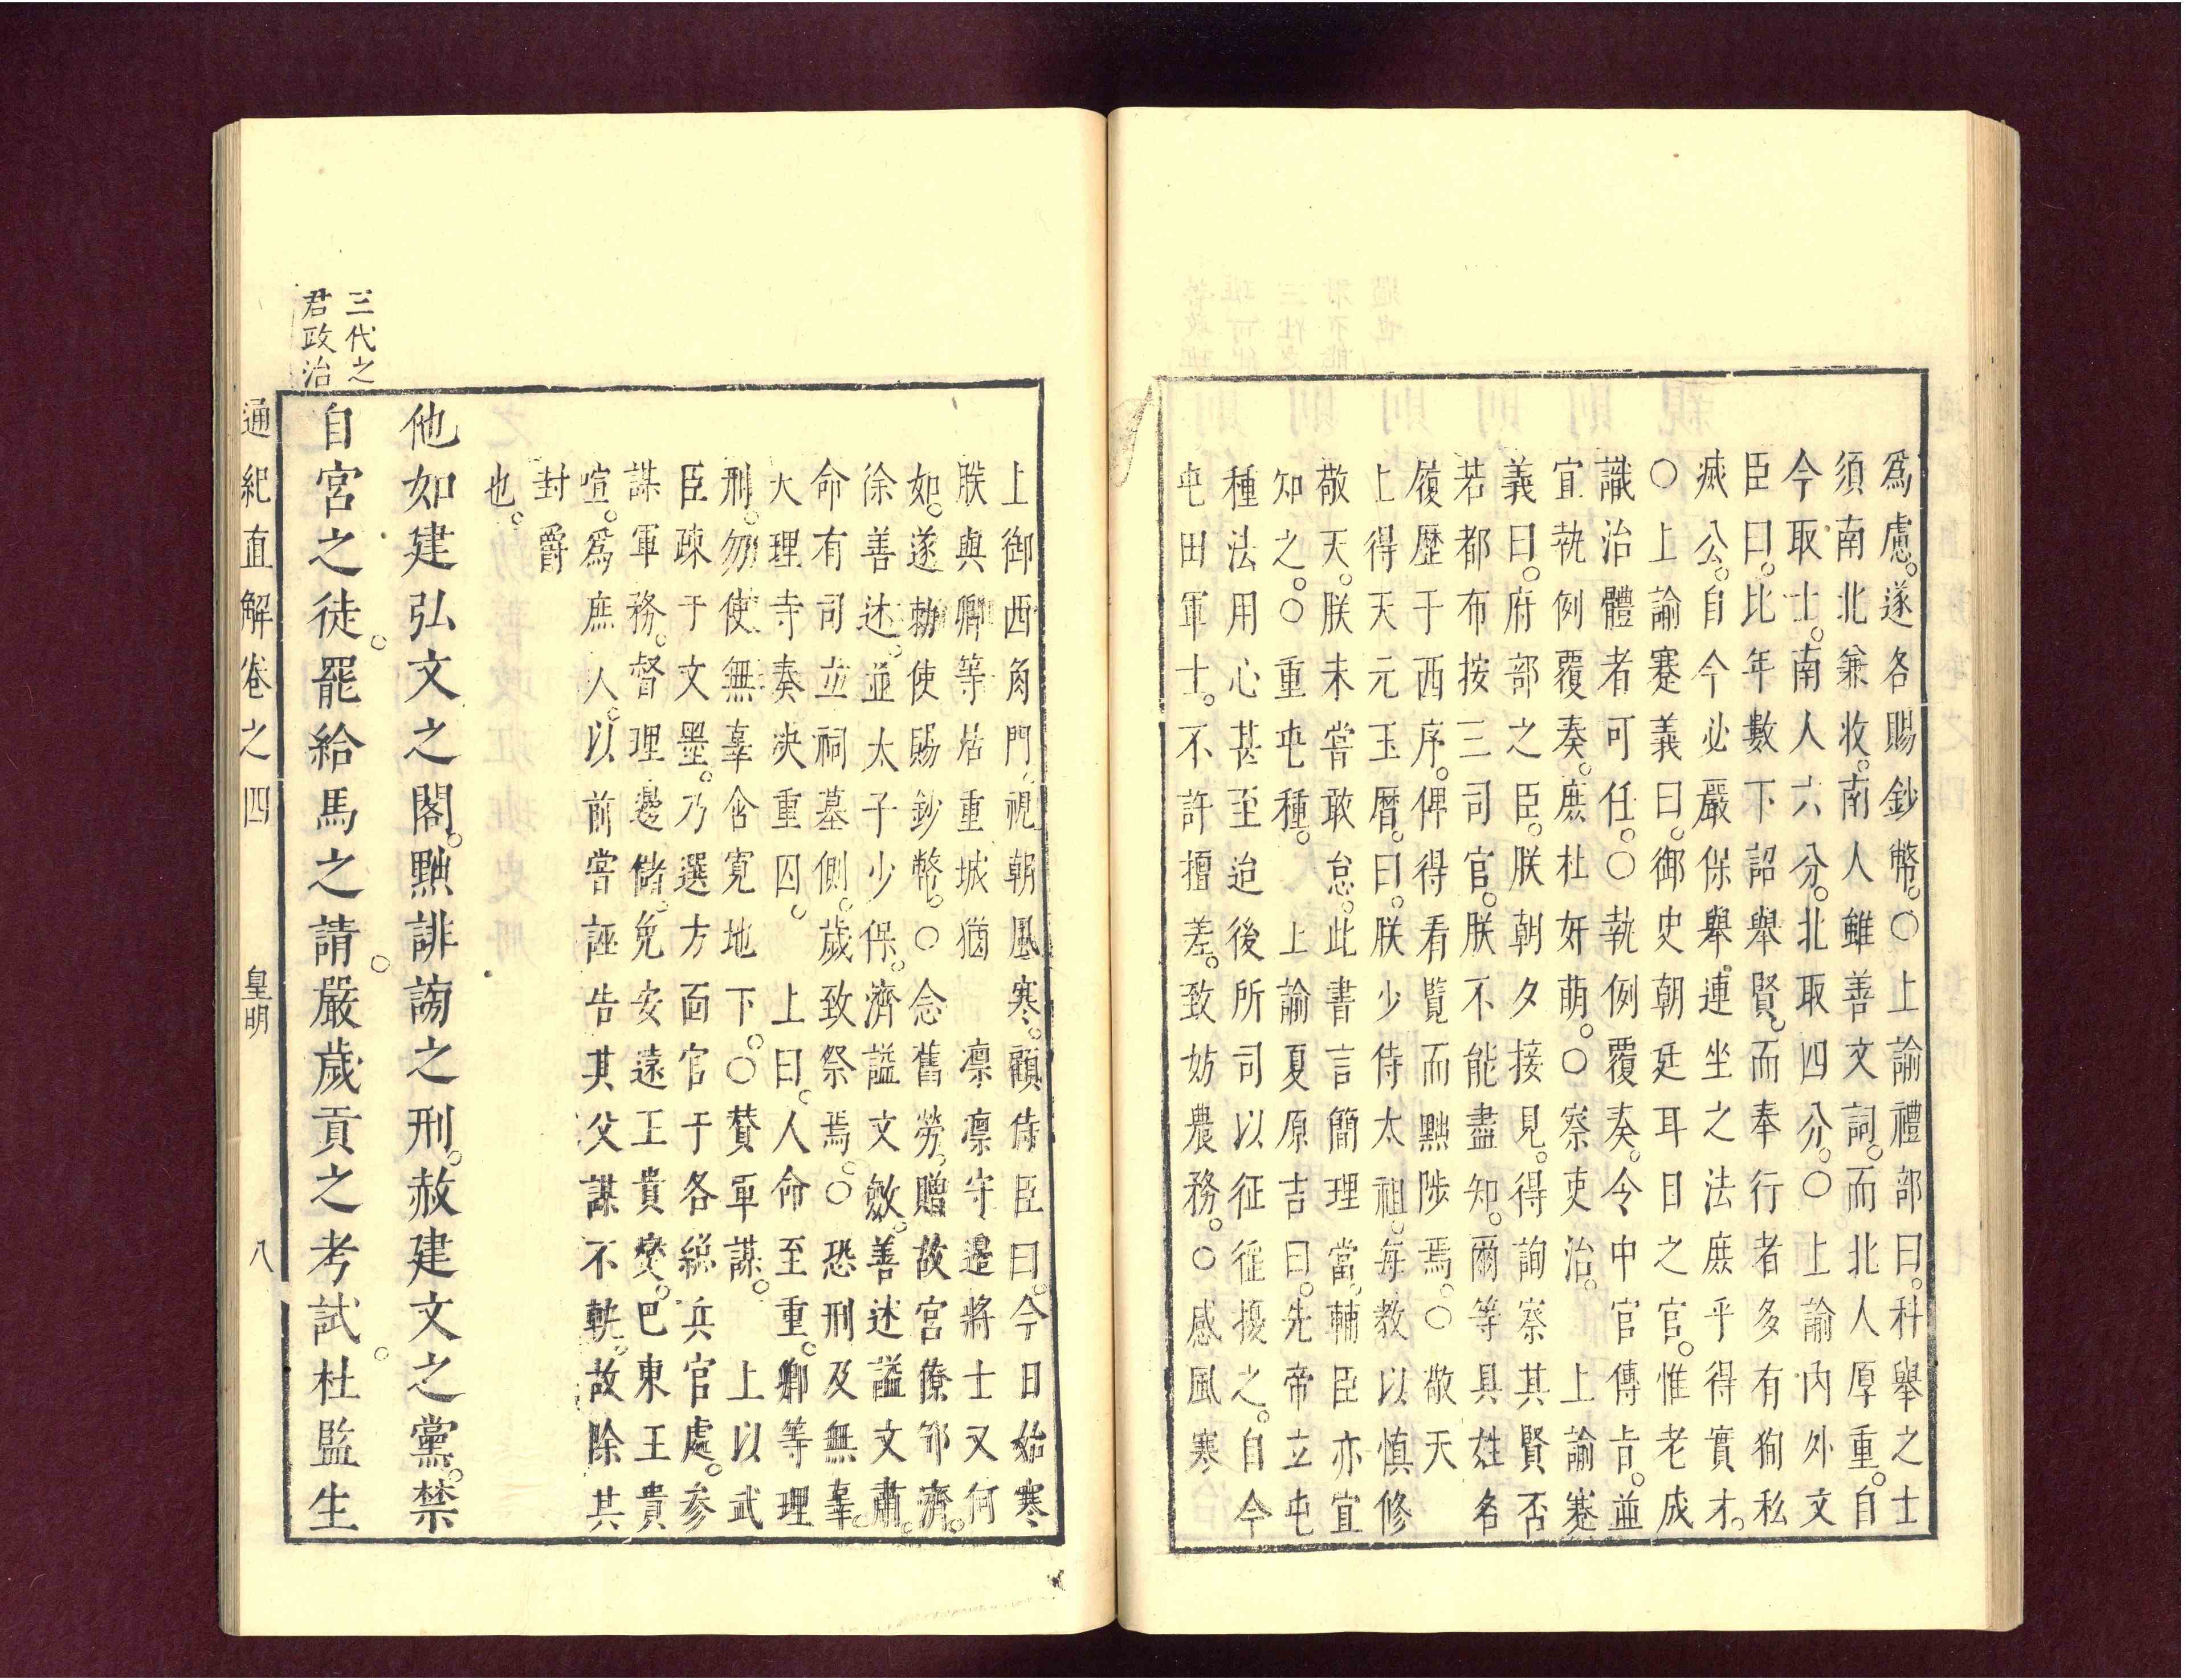 爲慮。遂各賜鈔幣。○上諭禮部曰。科舉之士
須南北兼收。南人雖善文詞。而北人厚重。自
今取士。南人六分。北取四分。○上諭内外文
臣曰。比年數下詔舉賢。而奉行者多有狥私
滅公。自今必嚴保舉。連坐之法庶乎得實才。
○上諭蹇義曰。御史朝廷耳目之官。惟老成
識治體者可任。○執例覆奏。令中官傳旨。並
宜執例覆奏。庶杜奸萌。○察吏治。上諭蹇
義曰。府部之臣。朕朝夕接見。得詢察其賢否
若都布按三司官。朕不能盡知。爾等具姓名
履歷于西序。俾得看覧而黜陟焉。○敬天
上得天元玉曆。曰。朕少侍太祖。每教以慎修
敬天。朕未嘗敢怠。此書言簡理當。輔臣亦宜
知之。○重屯種。上諭夏原吉曰。先帝立屯
種法用心甚至迨後所司以征徭擾之。自今
屯田軍士。不許擅差。致妨農務。○感風寒
上御西角門。視朝風寒。顧侍臣曰。今日始寒
朕與卿等居重城猶凛凛守邊將士又何
如。遂勅使賜鈔幣。○念舊勞。贈故宮僚鄒濟。
徐善述。並太子少保。濟謚文敏。善述謚文肅。
命有司立祠墓側。歲致祭焉。○恐刑及無辜。
大理寺奏決重囚。上曰。人命至重。卿等理
刑。勿使無辜含寃地下。○賛軍謀。上以武
臣疎于文墨。乃選方面官于各總兵官處。参
謀軍務。督理邊儲。免安遠王貴爕。巴東王貴
喧。爲庶人。以前嘗誣告其父謀不軌。故除其
封爵
也。
他如建弘文之閣。黜誹謗之刑。赦建文之黨。禁
三代之
君政治
自宮之徒。罷給馬之請。嚴歲貢之考試。杜監生
通紀直解卷之四 皇明 八